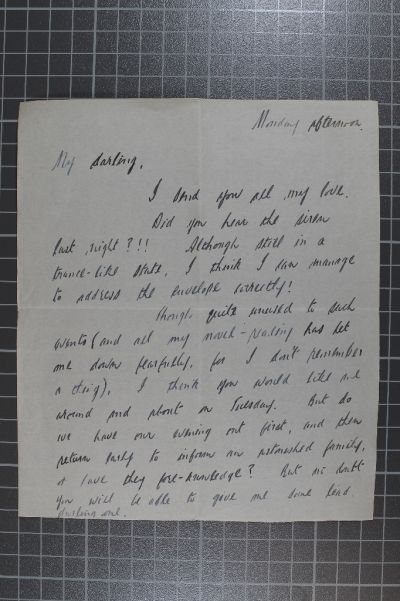 Monday afternoon.
My darling,
I send you all my love.
Did you hear the siren
last night?!! Although still in a
trance-like state, I think I can manage
to address the envelope correctly!
Though quite unused to such
events (and all my novel-reading has let
me down fearfully, for I don't remember
a thing), I think you would like me
around and about on Tuesday. But do
we have our evening out first, and then
return early to inform an astonished family,
or have they fore-knowledge? But no doubt
you will be able to give me some lead,
darling one.